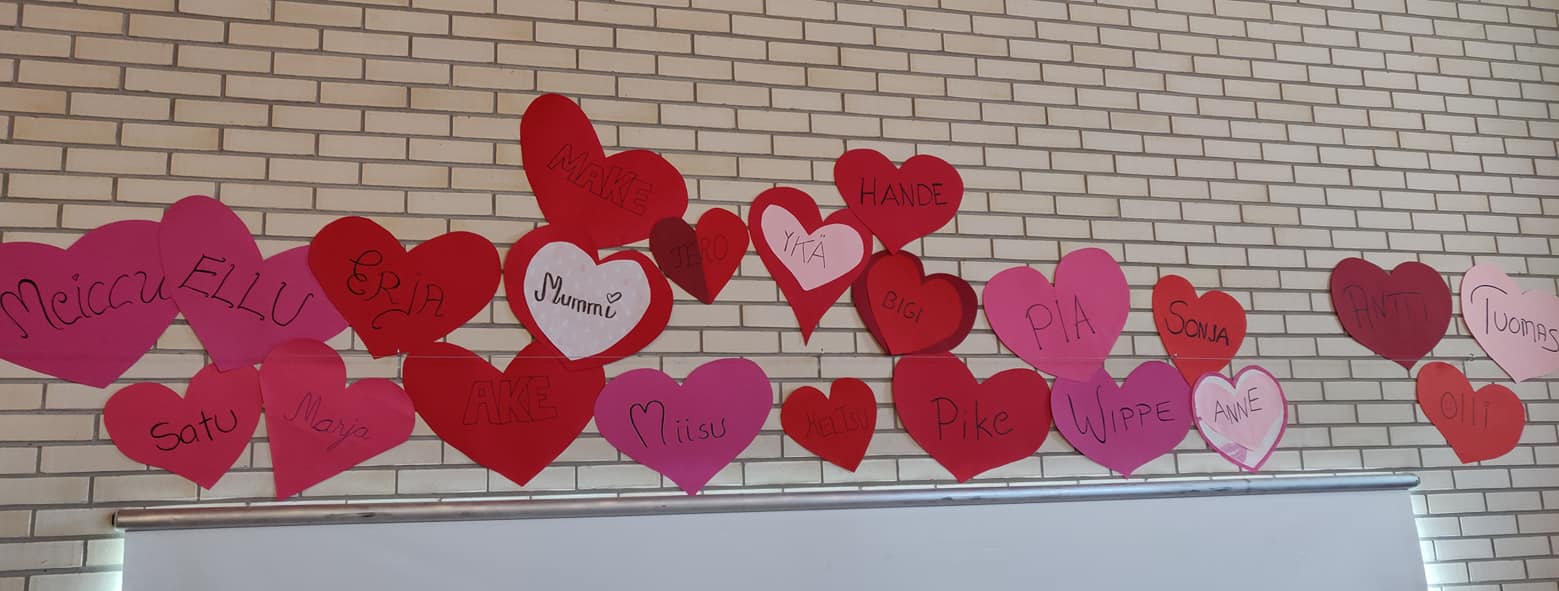 MAKE
HANDE
Meiccu
ELLU
ERJA
Mummi
JERO
YKÄ
BIGI
PIA
SONJA
ANTTI
TUOMAS
Satu
Marja
AKE
Miisu
HELTSU
Pike
WIPPE
ANNE
Olli